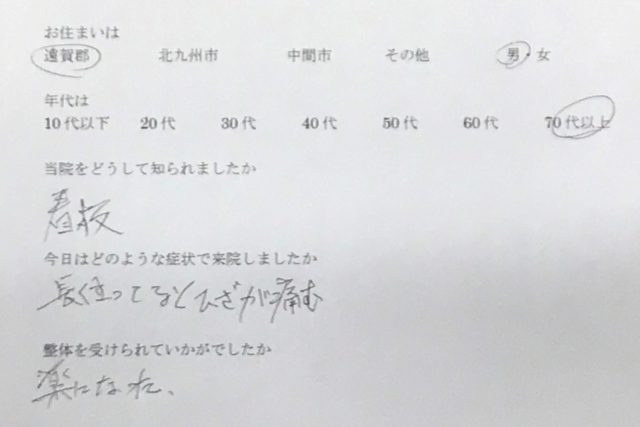 お住まいは
遠賀郡 北九州市 中間市 その他 男・女
年代は
10代以下 20代 30代 40代 50代 60代 70代以上
当院をどうして知られましたか
看板
今日はどのような症状で来院しましたか
長く立ってるとひざが痛む
整体を受けられていかがでしたか
楽になれた、